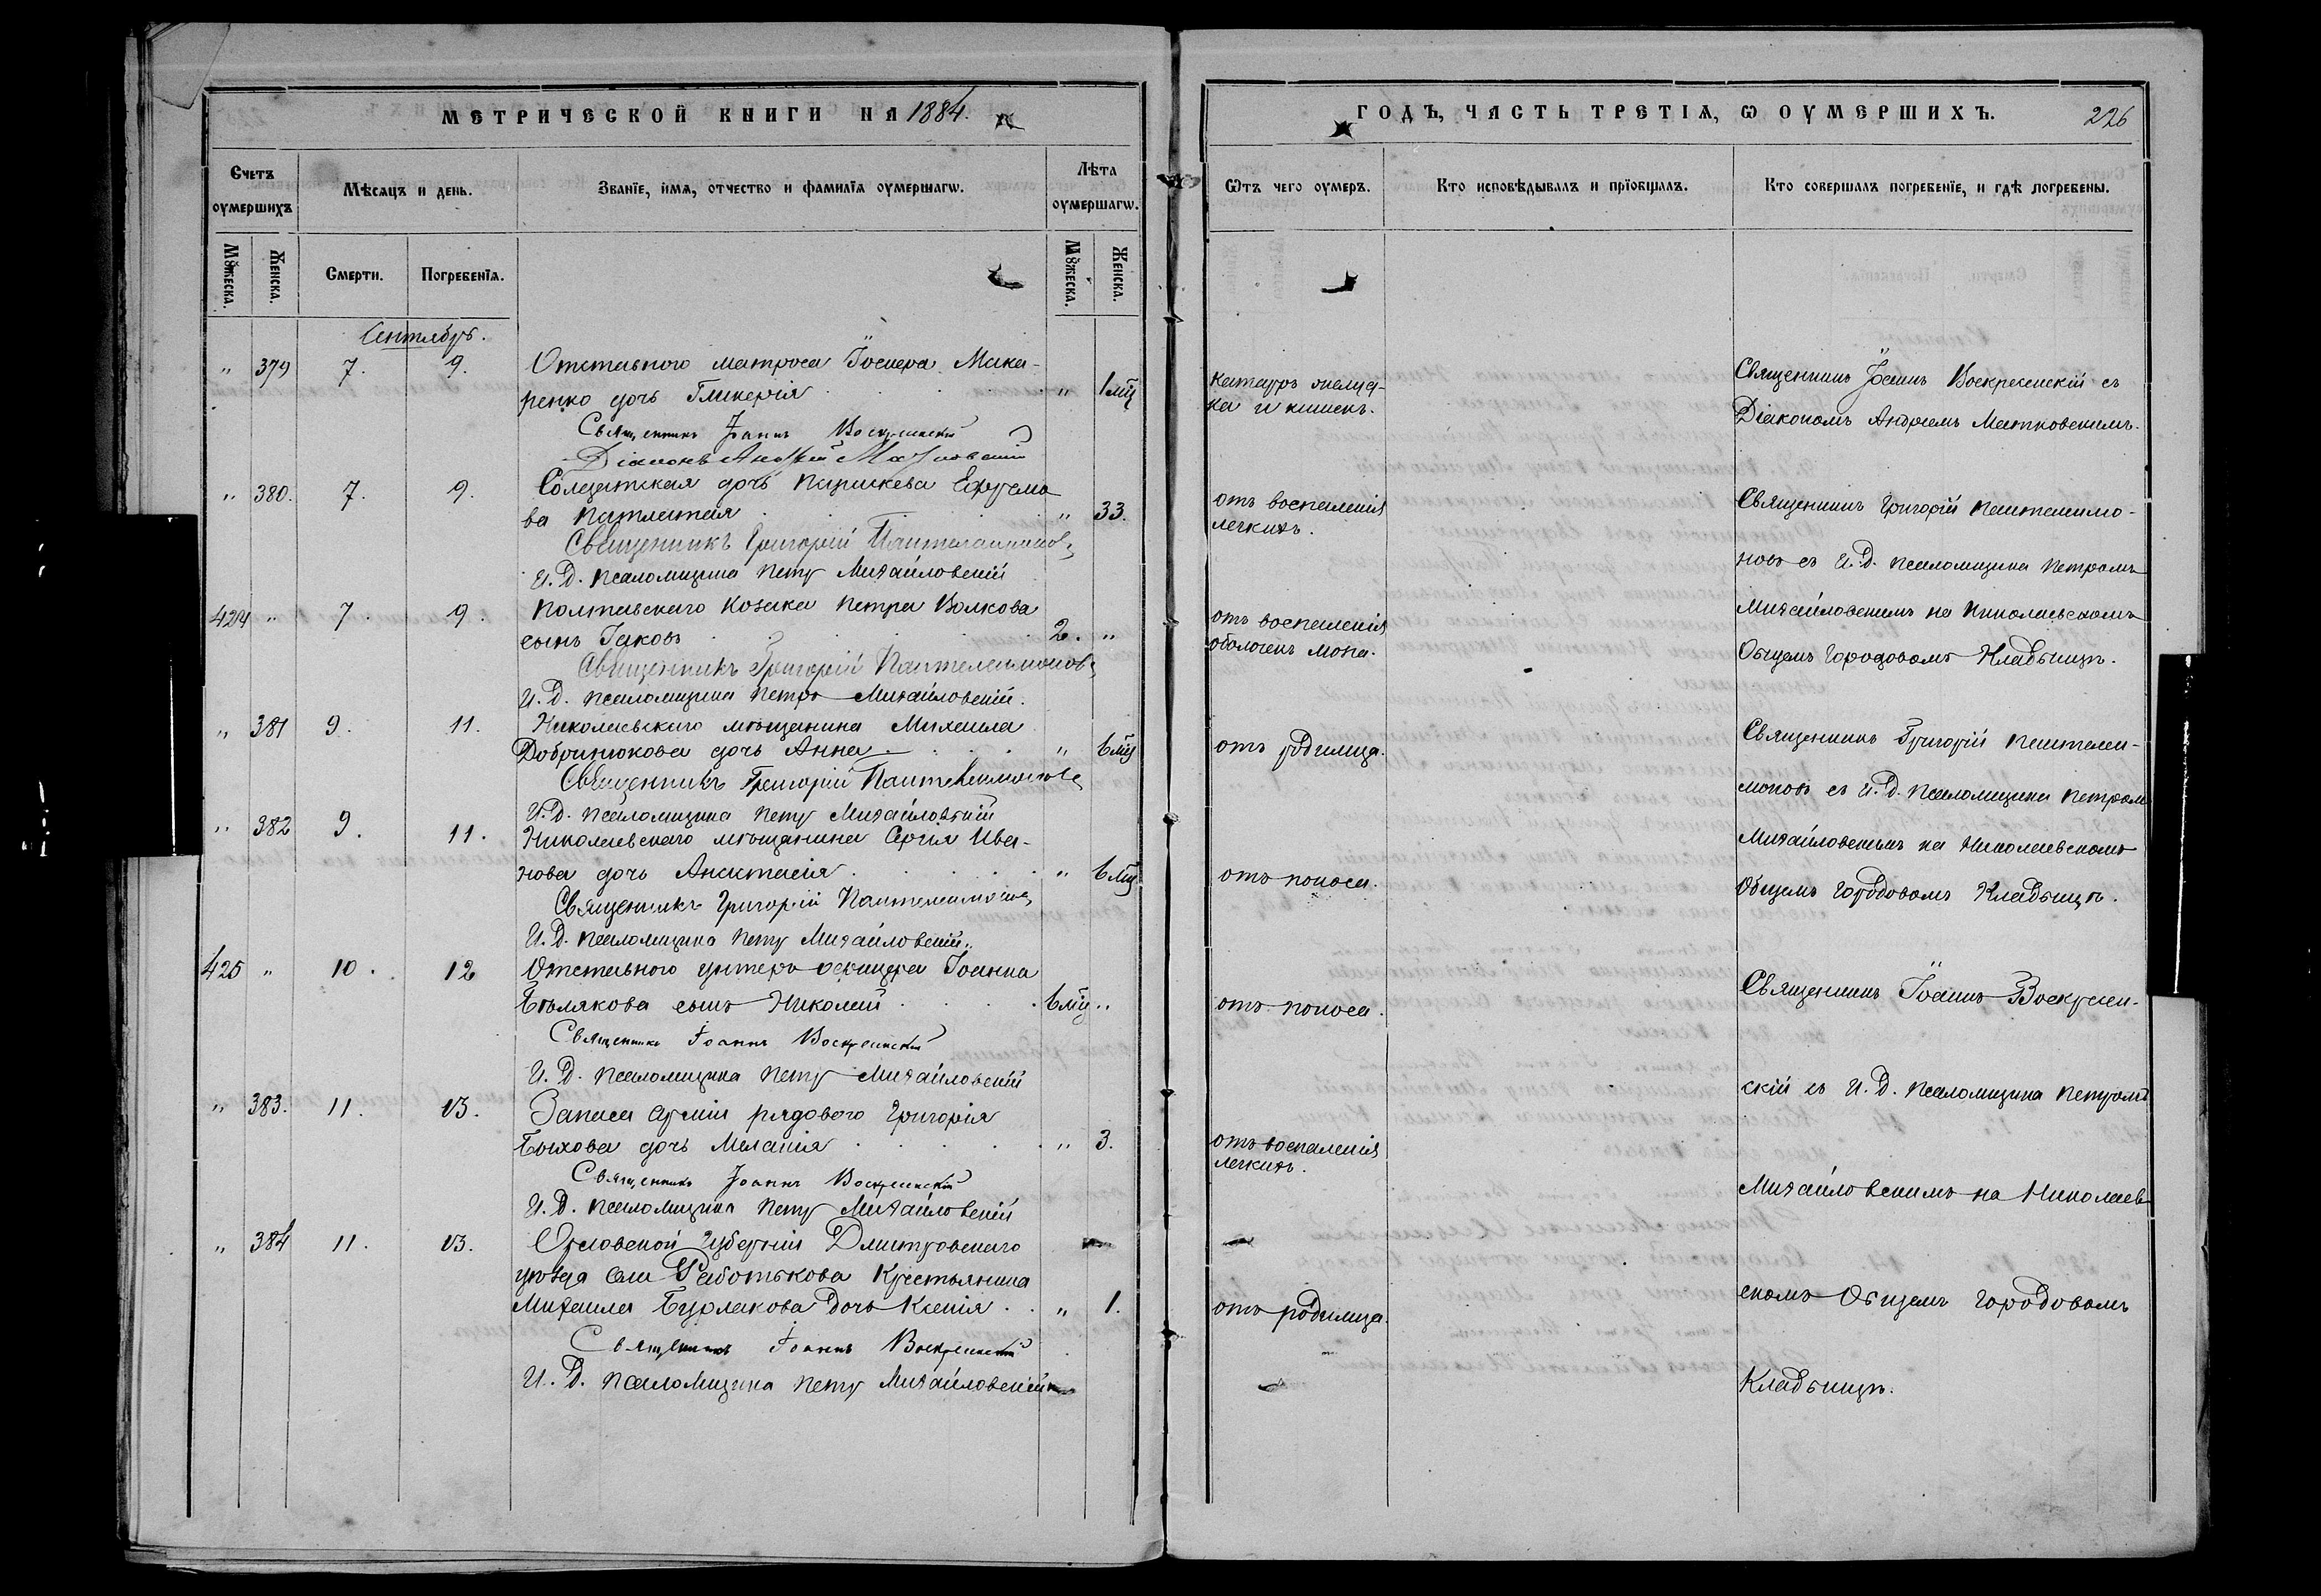 МЕТРИЧЕСКОЙ КНИГИ НА 1884.
Счетъ оумершихъ
Мѣсяцъ и день.
Званїе, имя, отчество и фамилїя оумершагѡ.
Лѣта оумершагѡ.
Мꙋжеска.
Женска.
Смерти.
Погребенїя.
Мꙋжеска.
Женска.
Сентябрь.
" 379 7. 9. Отставного матроса Іосифа Мака-
ренко дочь Гликерія " 1 мц
Священникъ Іоаннъ Воскресенскій
Діаконъ Андрей Матковскій
" 380. 7. 9. Солдатская дочь Параскева Ефремо
ва " 33.
Священникъ Григорій Пантелеимоновъ
И. Д. Псаломщика Петръ Михайловскій
424 " 7. 9. Полтавскаго Козака Петра Волкова
сынъ Іаковъ 2. "
Священникъ Григорій Пантелеимоновъ
И. Д. Псаломщика Петръ Михайловскій.
" 381 9. 11. Николаевскаго мѣщанина Михаила
Добринюкова дочь Анна " 6 мц
Священникъ Григорій Пантелеимоновъ
И. Д. Псаломщика Петръ Михайловскій
" 382 9. 11. Николаевскаго мѣщанина Сергія Ива-
нова дочь Анастасія " 6 мц
Священникъ Григорій Пантелеимоновъ
И. Д. Псаломщика Петръ Михайловскій.
425 " 10. 12 Отставного унтеръ офицера Іоанна
Бѣлякова сынъ Николай 6 мц "
Священникъ Іоаннъ Воскресенскій
И. Д. Псаломщика Петръ Михайловскій
" 383. 11. 13. Запаса Арміи рядового Григорія
Быхова дочь Меланія " 3.
Священникъ Іоаннъ Воскресенскій
И. Д. Псаломщика Петръ Михайловскій
" 384 11. 13. Орловской Губерніи Дмитровскаго
уѣзда села Работькова Крестьянина
Михаила Бурлакова дочь Ксенія " 1.
Священникъ Іоаннъ Воскресенскій
И. Д. Псаломщика Петръ Михайловскій
ГОДЪ, ЧАСТЬ ТРЕТІЯ, Ѡ ОУМЕРШИХЪ.
226
Ѿтъ чего оумеръ.
Кто исповѣдывалъ и прїобщалъ.
Кто совершалъ погребенїе, и гдѣ погребены.
катарръ желуд-
ка и кишекъ.
Священникъ Іоаннъ Воскресенскій съ
Діакономъ Андреемъ Матковскимъ.
отъ воспаленія
легкихъ.
Священникъ Григорій Пантелеимо-
новъ съ И. Д. Псаломщика Петромъ
отъ воспаленія
оболочекъ мозга.
Михайловскимъ на Николаевскомъ
Общемъ Городовомъ Кладбищѣ.
отъ родимца.
Священникъ Григорій Пантелеи-
моновъ съ И. Д. Псаломщика Петромъ
Михайловскимъ на Николаевскомъ
отъ поноса.
Общемъ Городовомъ Кладбищѣ.
отъ поноса.
Священникъ Іоаннъ Воскресен-
скій съ И. Д. Псаломщика Петромъ
отъ воспаленія
легкихъ.
Михайловскимъ на Николаев
скомъ Общемъ Городовомъ
отъ родимца.
Кладбищѣ.